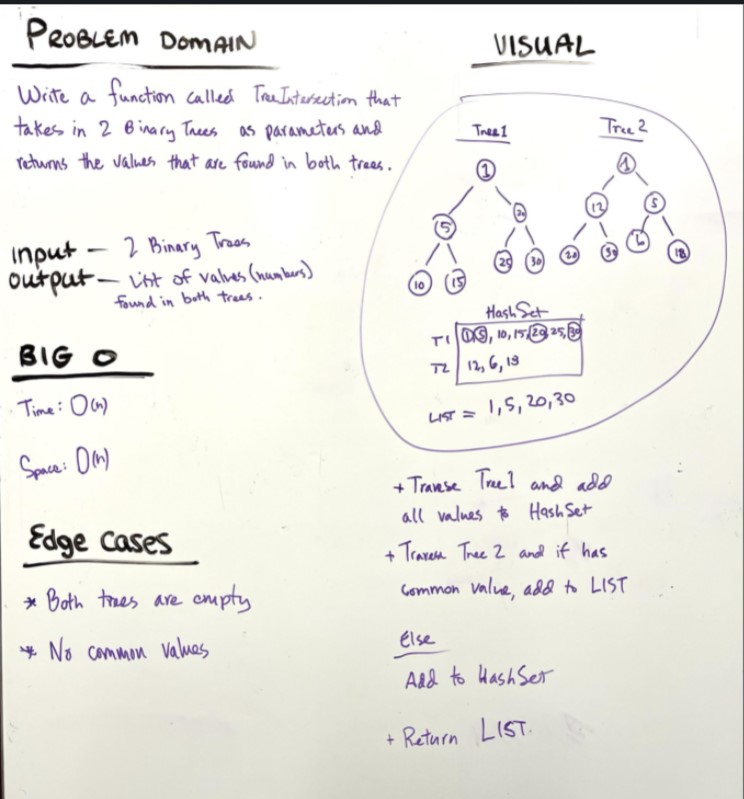 PROBLEM DOMAIN
Write a function called TreeIntersection that
takes in 2 Binary Trees as parameters and
returns the values that are found in both trees.
input – 2 Binary Trees
output – List of values (numbers)
found in both trees.
BIG O
Time: O(n)
Space: O(h)
Edge cases
* Both trees are empty
* No common values
VISUAL
Tree 1
1
5 20
10 15 25 30
Tree 2
1
12 5
20 30 6 18
HashSet
T1 1, 5, 10, 15, 20, 25, 30
T2 12, 6, 18
LIST = 1, 5, 20, 30
+ Traverse Tree 1 and add
all values to HashSet
+ Traverse Tree 2 and if has
common value, add to LIST
Else
Add to HashSet
+ Return LIST.